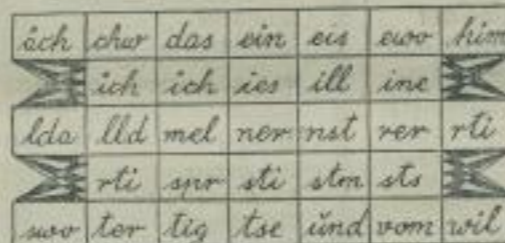 äch chw das ein eis ewo him
ich ich ies ill ine
lda lld mel ner nst rer rti
rti spr sti stm sts
swo ter tig tse und vom wil